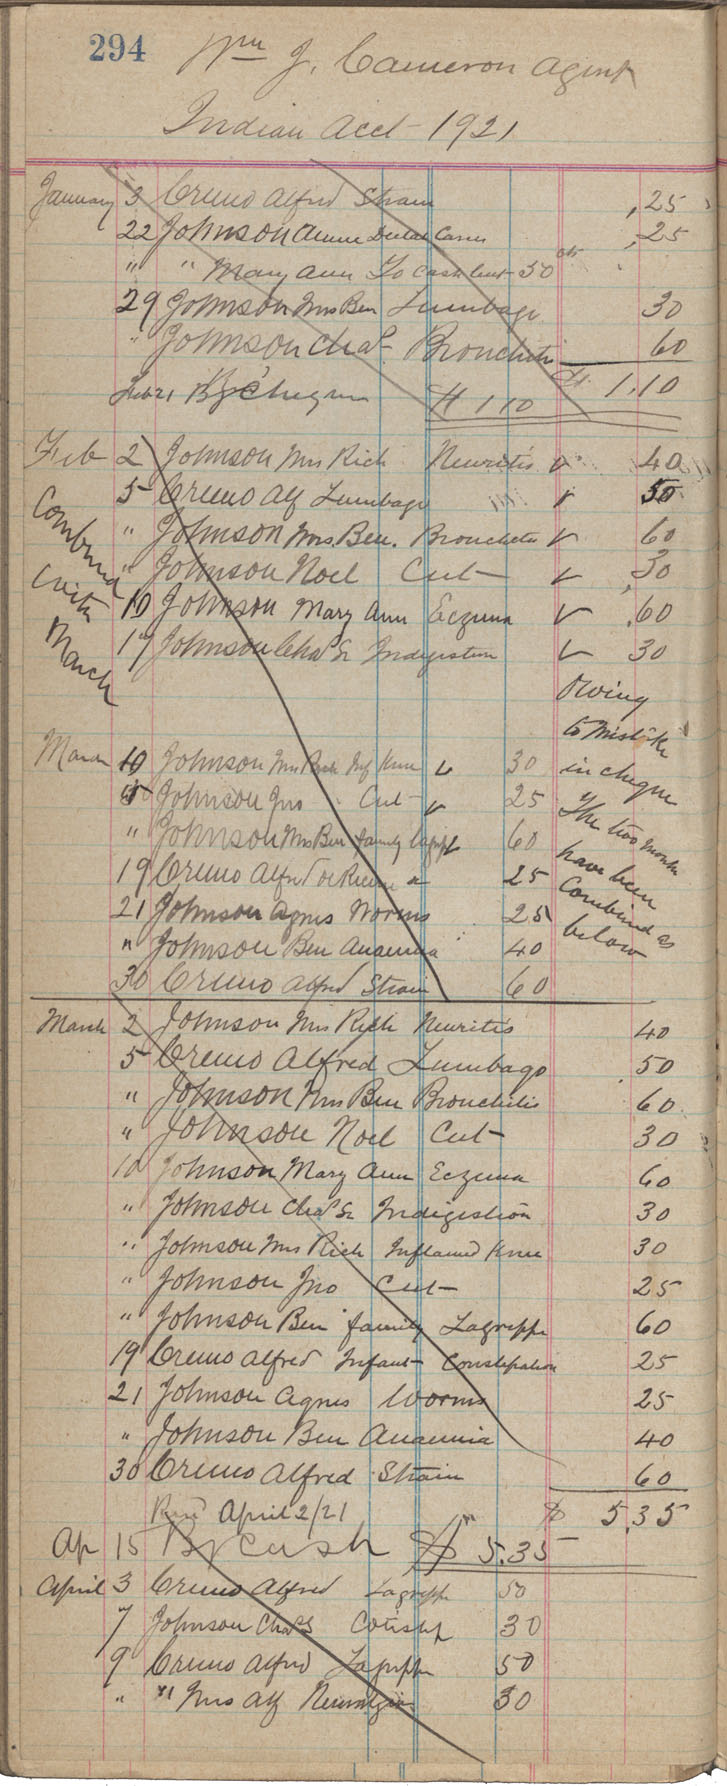 294 Wm J. Cameron Agent
Indian Acct 1921
January 3 Cremo Alfred Strain .25
22 Johnson Dental Caries .25
" " Mary Ann To Cash lent 50 cts
29 Johnson Mrs Ben Lumbago 30
" Johnson Chas. Bronchitis 60
$ 1.10
Feb 21 By Cheque $ 1 10
Feb 2 Johnson Mrs Rich Neuritis ✓ 40
5 Cremo Alf Lumbago ✓ 50
" Johnson Mrs. Ben. Bronchitis ✓ 60
" Johnson Noel Cut ✓ .30
10 Johnson Mary Ann Eczema ✓ .60
Johnson Chas Sr Indigestion ✓ 30
Combined
with
March
Owing
to Mistake
in cheque
The two months
have been
Combined as
below
March 10 Johnson Mrs Rich Inf Knee ✓ 30
Johnson Jno Cut ✓ 25
" Johnson Mrs Ben family Lagrippe ✓ 60
19 Cremo Alfred 25
21 Johnson Agnes Worms 25
" Johnson Ben Anaemia 40
30 Cremo Alfred Strain 60
March 2 Johnson Mrs Rich Neuritis 40
5 Cremo Alfred Lumbago 50
" Johnson Mrs Ben Bronchitis 60
" Johnson Noel Cut 30
10 Johnson Mary Ann Eczema 60
" Johnson Chas Sr Indigestion 30
" Johnson Mrs Rich Inflamed Knee 30
" Johnson Jno Cut 25
" Johnson Ben family Lagrippe 60
19 Cremo Alfred Infant Constipation 25
21 Johnson Agnes Worms 25
" Johnson Ben Anaemia 40
30 Cremo Alfred Strain 60
April 2/21 $ 5.35
Ap 15 By Cash $ 5.35
April 3 Cremo Alfred Lagrippe 50
7 Johnson Chas 30
9 Cremo Alfred Lagrippe 50
" " Mrs Alf Neuralgia 30